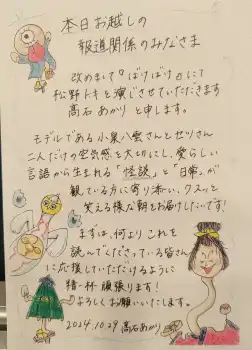 本日お越しの
報道関係のみなさま
改めまして『ばけばけ』にて
松野トキを演じさせていただきます
髙石あかりと申します。
モデルである小泉八雲さんとセツさん
二人だけの空気感を大切にし、愛らしい
言語から生まれる「怪談」と「日常」が
観ている方に寄り添い、クスッと
笑える様な朝をお届けしたいです!
まずは、何よりこれを
読んでくださっている皆さん
に応援していただけるように
精一杯頑張ります!
よろしくお願いいたします。
2024.10.29 髙石あかり